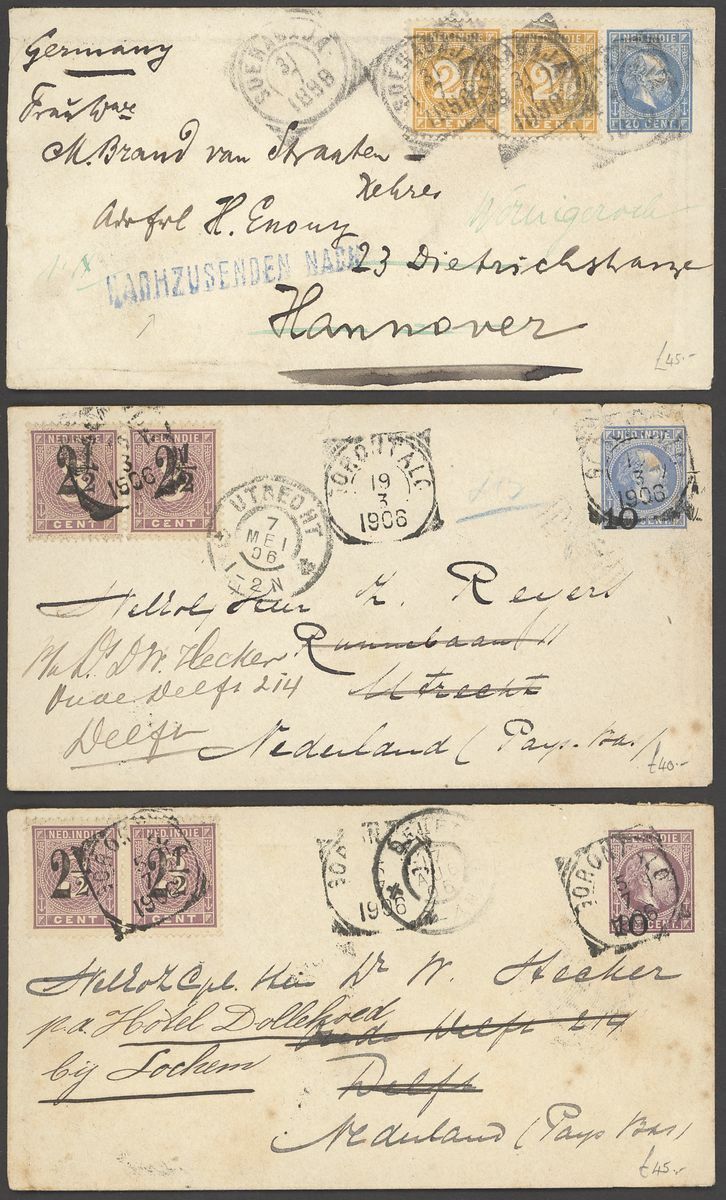 Germany
SOERABAJA
31
7
1898
NED. INDIE
2
CENT
NED. INDIE
2
CENT
SOERABAJA
1898
1898
NED. INDIE
20 CENT
M. Brand van Straaten
Adr Frl H. Enouy
NACHZUSENDEN NACH
23
Hannover
£45.-
NED. INDIE
2½
CENT
NED. INDIE
2½
CENT
3
1906
UTRECHT
7
MEI
06
1-2N
GORONTALO
19
3
1906
NED. INDIE
3
1906
10
Heer
W. Hecker
Oude Delft 214
Utrecht
Delft
Nederland (Pays-Bas)
£40.-
NED. INDIE
2½
CENT
NED. INDIE
2½
CENT
1906
1906
GORONTALO
5
7
10
Dr W. Hecker
p.a. Hôtel
Oude Delft 214
bij Lochem
Delft
Nederland (Pays Bas)
£45.-